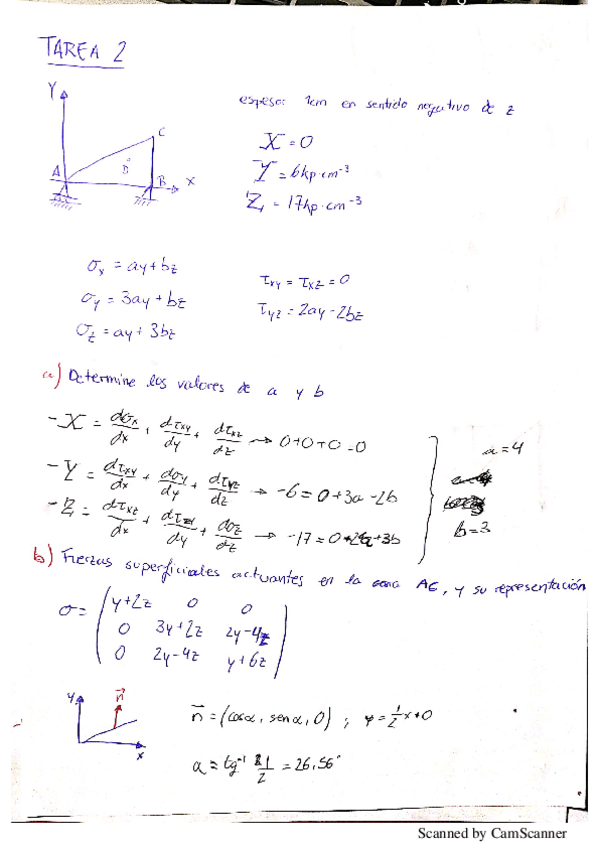 TAREA 2
Y
C
D
A
B
x
espesor 1cm en sentido negativo de z
X = 0
Y = 6kp·cm⁻³
Z = 17kp·cm⁻³
σx = ay+bz
σy = 3ay+bz
σz = ay+3bz
τxy = τxz = 0
τyz = 2ay-2bz
a) Determine los valores de a y b
-X = dσx/dx + dτxy/dy + dτxz/dz → 0+0+0=0
-Y = dτxy/dx + dσy/dy + dτyz/dz → -6=0+3a-2b
-Z = dτxz/dx + dτyz/dy + dσz/dz → -17=0+2a+3b
a=4
b=3
b) Fuerzas superficiales actuantes en la cara AC, y su representación
σ = ( y+2z 0 0
0 3y+2z 2y-4z
0 2y-4z y+6z )
y
n
x
n = (cosα, senα, 0) ; y=1/2x+0
α = tg⁻¹ 1/2 = 26,56°
Scanned by CamScanner